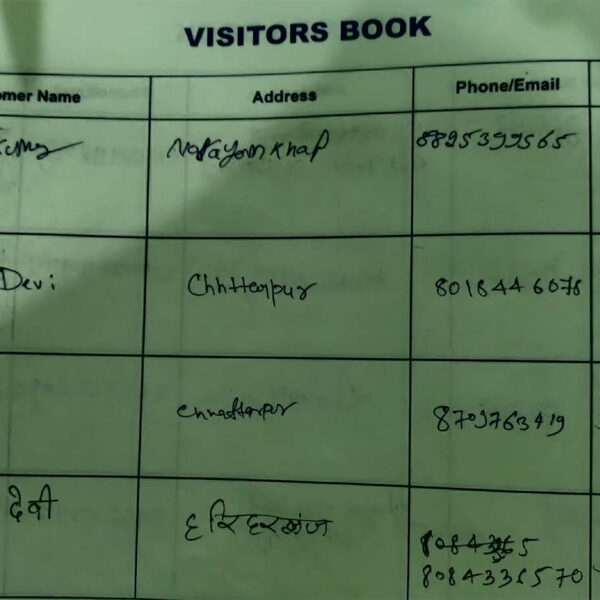 VISITORS BOOK
omer Name Address Phone/Email
Narayankhap 8895399565
Devi Chhttarpur 8018446078
8709763419
देवी हरिहरगंज
8084331570